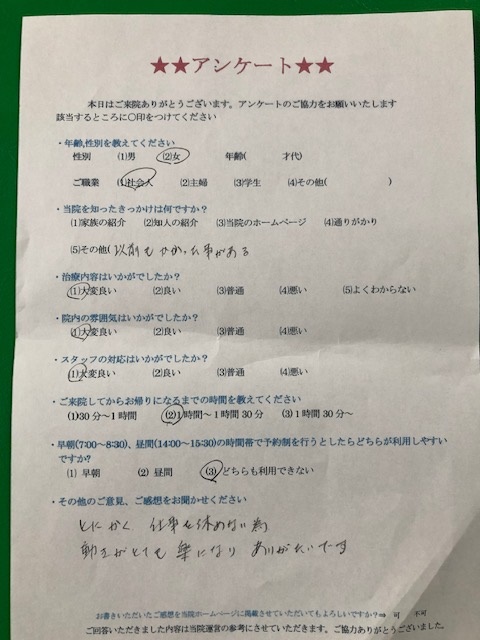 ★★アンケート★★
本日はご来院ありがとうございます。アンケートのご協力をお願いいたします
該当するところに〇印をつけてください
・年齢,性別を教えてください
性別 (1)男 (2)女 年齢( 才代)
ご職業 (1)社会人 (2)主婦 (3)学生 (4)その他( )
・当院を知ったきっかけは何ですか?
(1)家族の紹介 (2)知人の紹介 (3)当院のホームページ (4)通りがかり
(5)その他( 以前もかかった事がある
・治療内容はいかがでしたか?
(1)大変良い (2)良い (3)普通 (4)悪い (5)よくわからない
・院内の雰囲気はいかがでしたか?
(1)大変良い (2)良い (3)普通 (4)悪い
・スタッフの対応はいかがでしたか?
(1)大変良い (2)良い (3)普通 (4)悪い
・ご来院してからお帰りになるまでの時間を教えてください
(1)30分~1時間 (2)1時間~1時間30分 (3)1時間30分~
・早朝(7:00~8:30)、昼間(14:00~15:30)の時間帯で予約制を行うとしたらどちらが利用しやすい
ですか?
(1) 早朝 (2) 昼間 (3)どちらも利用できない
・その他のご意見、ご感想をお聞かせください
とにかく 仕事を休めない為
動きがとても 楽になり ありがたいです
お書きいただいたご感想を当院ホームページに掲載させていただいてもよろしいですか?⇒ 可 不可
ご回答いただきました内容は当院運営の参考にさせていただきます。ご協力ありがとうございました。